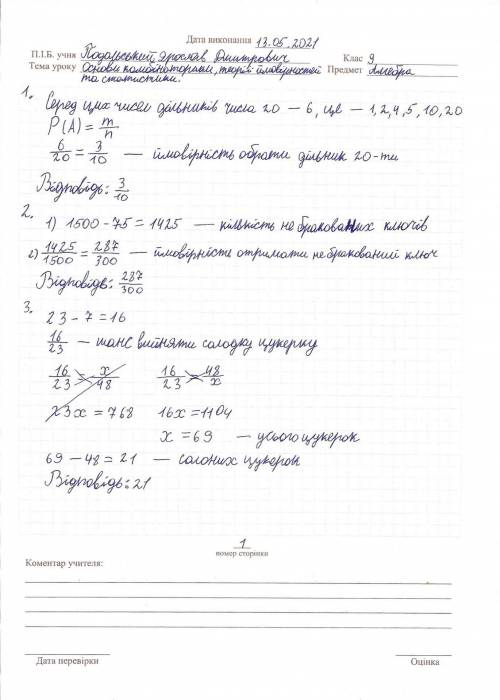 Дата виконання 13.05.2021
П.І.Б. учня Подольський Ярослав Дмитрович Клас 9
Тема уроку Основи комбінаторики, теорії ймовірностей Предмет Алгебра
та статистики.
1. Серед цих чисел дільників числа 20 — 6, це — 1, 2, 4, 5, 10, 20
P(A) = m/n
6/20 = 3/10 — ймовірність обрати дільник 20-ти
Відповідь: 3/10
2. 1) 1500 - 75 = 1425 — кількість не бракованих ключів
2) 1425/1500 = 287/300 — ймовірність отримати не бракований ключ
Відповідь: 287/300
3. 23 - 7 = 16
16/23 — шанс вийняти солодку цукерку
16/23 = x/48 16/23 = 48/x
23x = 768 16x = 1104
x = 69 — усього цукерок
69 - 48 = 21 — солоних цукерок
Відповідь: 21
1
номер сторінки
Коментар учителя:
Дата перевірки Оцінка